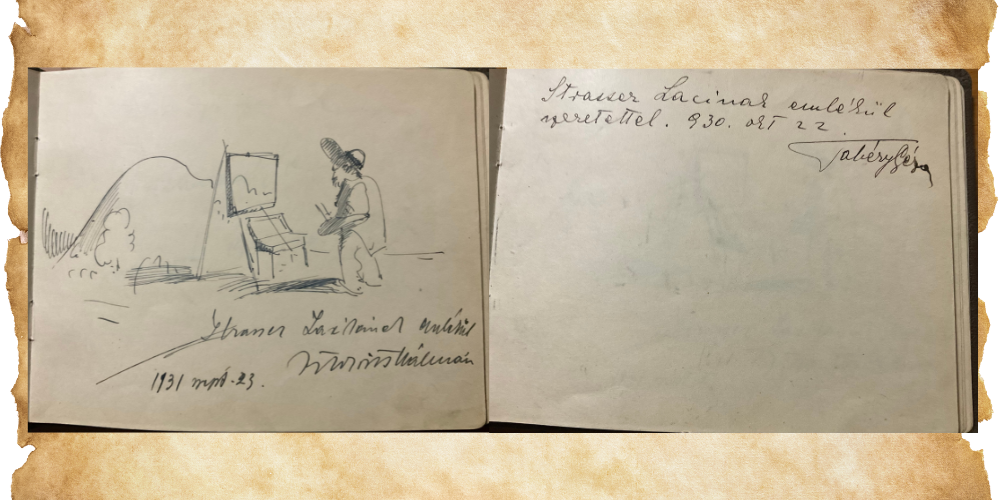 Strasser Lacikának emlékül
Kálmán
1931 23.
Strasser Lacinak emlékül
szeretettel. 930. okt 22.
Tabéry Géza